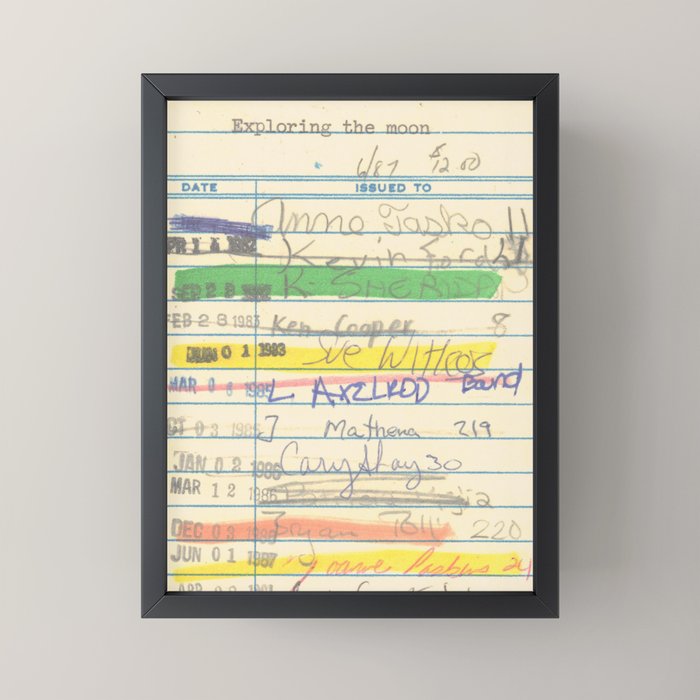 Exploring the moon
6/87 $12.00
DATE ISSUED TO
Anne Tasko 11
Kevin Ford
SEP 28 K. SHERIDAN
FEB 28 1983 Ken Cooper 8
JUN 01 1983 Sue Witlcos
MAR 06 1985 L AXELROD Band
OCT 03 1985 J Mathena 219
JAN 02 1986 Cary Shay 30
MAR 12 1986
DEC 03 1986 Bryan 220
JUN 01 1987 Joanne 24